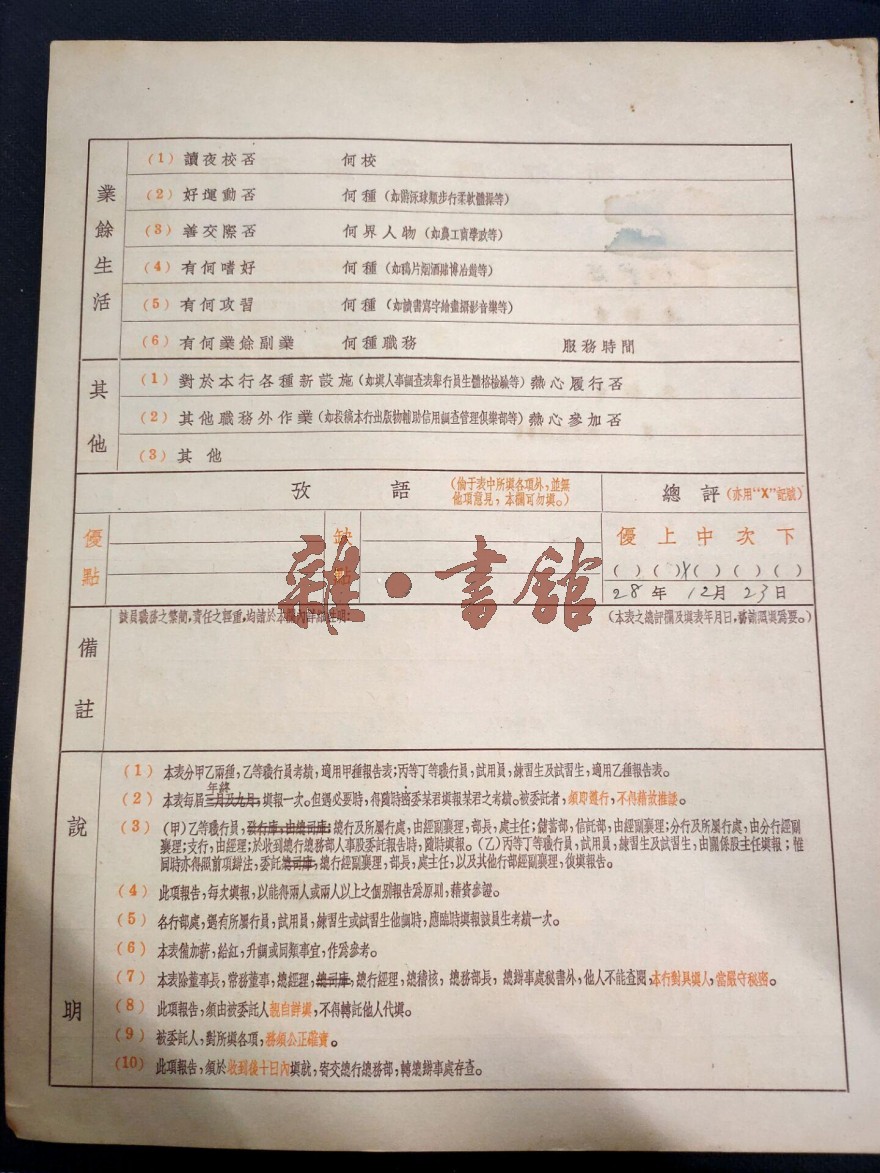 業餘生活
(1) 讀夜校否 何校
(2) 好運動否 何種 (如游泳球類步行柔軟體操等)
(3) 善交際否 何界人物 (如農工商學政等)
(4) 有何嗜好 何種 (如鴉片烟酒賭博冶遊等)
(5) 有何攻習 何種 (如讀書寫字繪畫攝影音樂等)
(6) 有何業餘副業 何種職務 服務時間
其他
(1) 對於本行各種新設施 (如填人事調查表舉行員生體格檢驗等) 熱心履行否
(2) 其他職務外作業 (如投稿本行出版物輔助信用調查管理俱樂部等) 熱心參加否
(3) 其他
攷語 (倘于表中所填各項外,並無
他項意見,本欄可勿填。)
總評 (亦用“X”記號)
優點
缺
優 上 中 次 下
( ) ( ) X( ) ( ) ( )
28年 12月 23日
備註
該員職務之繁簡,責任之輕重,均請於本欄內詳細註明.
(本表之總評欄及填表年月日,務請照填爲要。)
雜·書館
說明
(1) 本表分甲乙兩種,乙等職行員考績,適用甲種報告表;丙等丁等職行員,試用員,練習生及試習生,適用乙種報告表。
年終
(2) 本表每屆三月及九月,填報一次。但遇必要時,得隨時密委某君填報某君之考績。被委託者,須即遵行,不得藉故推諉。
(3) (甲)乙等職行員,發行庫,由總司庫;總行及所屬行處,由經副襄理,部長,處主任;儲蓄部,信託部,由經副襄理;分行及所屬行處,由分行經副
襄理;支行,由經理;於收到總行總務部人事股委託報告時,隨時填報。(乙)丙等丁等職行員,試用員,練習生及試習生,由關係股主任填報;惟
同時亦得照前項辦法,委託總司庫,總行經副襄理,部長,處主任,以及其他行部經副襄理,復填報告。
(4) 此項報告,每次填報,以能得兩人或兩人以上之個別報告爲原則,藉資參證。
(5) 各行部處,遇有所屬行員,試用員,練習生或試習生他調時,應臨時填報該員生考績一次。
(6) 本表備加薪,給紅,升調或同類事宜,作爲參考。
(7) 本表除董事長,常務董事,總經理,總司庫,總行經理,總稽核,總務部長,總辦事處秘書外,他人不能查閱,本行對具填人,當嚴守秘密。
(8) 此項報告,須由被委託人親自詳填,不得轉託他人代填。
(9) 被委託人,對所填各項,務須公正確實。
(10) 此項報告,須於收到後十日內填就,寄交總行總務部,轉總辦事處存查。